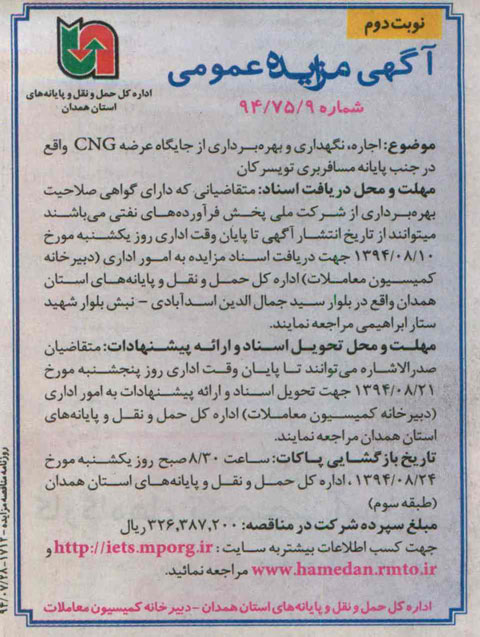 نوبت دوم
آگهی مزایده عمومی
شماره ۹۴/۷۵/۹
اداره کل حمل و نقل و پایانه‌های
استان همدان
موضوع: اجاره، نگهداری و بهره‌برداری از جایگاه عرضه CNG واقع
در جنب پایانه مسافربری تویسرکان
مهلت و محل دریافت اسناد: متقاضیانی که دارای گواهی صلاحیت
بهره‌برداری از شرکت ملی پخش فرآورده‌های نفتی می‌باشند
میتوانند از تاریخ انتشار آگهی تا پایان وقت اداری روز یکشنبه مورخ
۱۳۹۴/۰۸/۱۰ جهت دریافت اسناد مزایده به امور اداری (دبیرخانه
کمیسیون معاملات) اداره کل حمل و نقل و پایانه‌های استان
همدان واقع در بلوار سید جمال الدین اسدآبادی - نبش بلوار شهید
ستار ابراهیمی مراجعه نمایند.
مهلت و محل تحویل اسناد و ارائه پیشنهادات: متقاضیان
صدرالاشاره می‌توانند تا پایان وقت اداری روز پنجشنبه مورخ
۱۳۹۴/۰۸/۲۱ جهت تحویل اسناد و ارائه پیشنهادات به امور اداری
(دبیرخانه کمیسیون معاملات) اداره کل حمل و نقل و پایانه‌های
استان همدان مراجعه نمایند.
تاریخ بازگشایی پاکات: ساعت ۸/۳۰ صبح روز یکشنبه مورخ
۱۳۹۴/۰۸/۲۴، اداره کل حمل و نقل و پایانه‌های استان همدان
(طبقه سوم)
مبلغ سپرده شرکت در مناقصه: ۳۲۶,۳۸۷,۲۰۰ ریال
جهت کسب اطلاعات بیشتر به سایت : http://iets.mporg.ir و
www.hamedan.rmto.ir مراجعه نمائید.
اداره کل حمل و نقل و پایانه‌های استان همدان - دبیرخانه کمیسیون معاملات
روزنامه مناقصه مزایده - ۱۷۱۲ - ۹۴/۰۷/۲۸